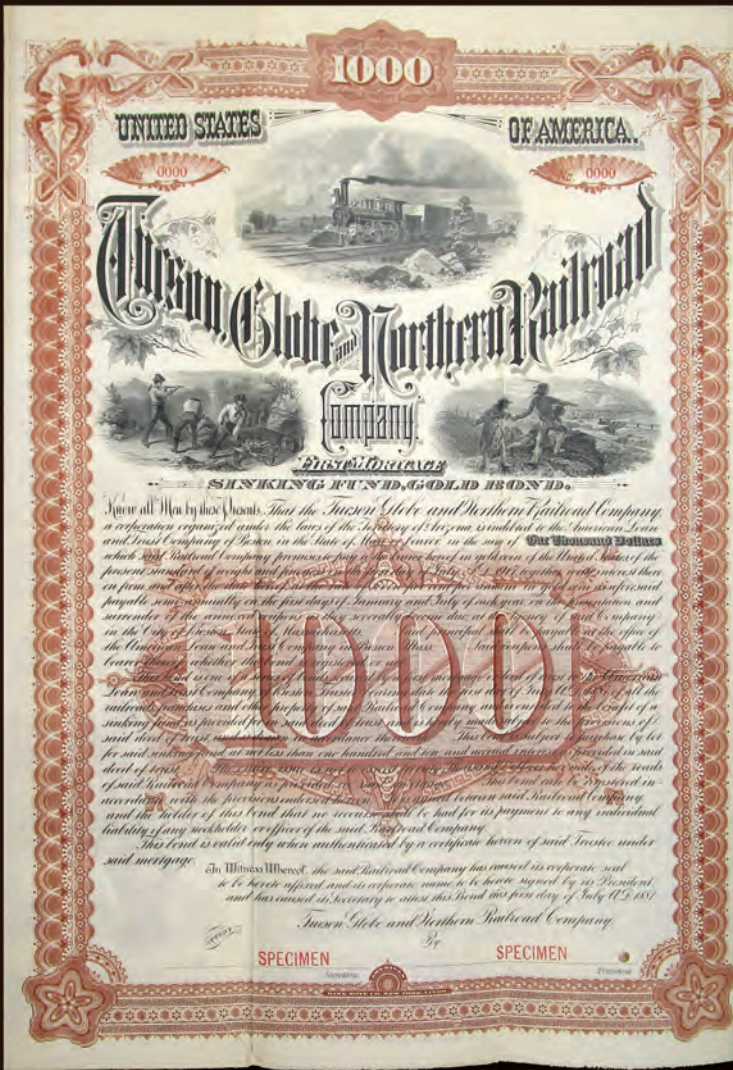 1000
UNITED STATES OF AMERICA.
No. 0000 No. 0000
Tucson, Globe and Northern Railroad
Company.
FIRST MORTGAGE
SINKING FUND, GOLD BOND.
Know all Men by these Presents, That the Tucson Globe and Northern Railroad Company,
a corporation organized under the laws of the Territory of Arizona, is indebted to the American Loan
and Trust Company of Boston, in the State of Mass. or bearer, in the sum of One Thousand Dollars
which said Railroad Company promises to pay to the bearer hereof in gold coin of the United States of the
present standard of weight and fineness on the first day of July, A.D. 1917, together with interest there
on from and after the date hereof at the rate of per cent per annum in gold coin as aforesaid
payable semi-annually on the first days of January and July of each year, on the presentation and
surrender of the annexed coupons as they severally become due at the agency of said Company
in the City of Boston, State of Massachusetts. Said principal shall be payable at the office of
the American Loan and Trust Company in Boston Mass. Said coupons shall be payable to
bearer thereof whether this bond is registered or not.
This bond is one of a series of bonds secured by a mortgage or deed of trust to the American
Loan and Trust Company of Boston, Trustee, bearing date the first day of July A.D. 1887 of all the
railroads, franchises and other property of said Railroad Company, and is entitled to the benefit of a
sinking fund as provided for in said deed of trust and is hereby made subject to the provisions of
said deed of trust This bond is subject to purchase by lot
for said sinking fund at not less than one hundred and ten, and accrued interest as provided in said
deed of trust. The entire issue is not to exceed Thousand Dollars per mile of the roads
of said Railroad Company as provided in said mortgage. This bond can be registered in
accordance with the provisions endorsed hereon. It is agreed between said Railroad Company
and the holder of this bond that no recourse shall be had for its payment to any individual
liability of any stockholder or officer of the said Railroad Company.
This bond is valid only when authenticated by a certificate hereon of said Trustee under
said mortgage.
In Witness Whereof, the said Railroad Company has caused its corporate seal
to be hereto affixed and its corporate name to be hereto signed by its President
and has caused its Secretary to attest this Bond this first day of July A.D. 1887
Tucson Globe and Northern Railroad Company
By
ATTEST
SPECIMEN SPECIMEN
Secretary. President.
1000